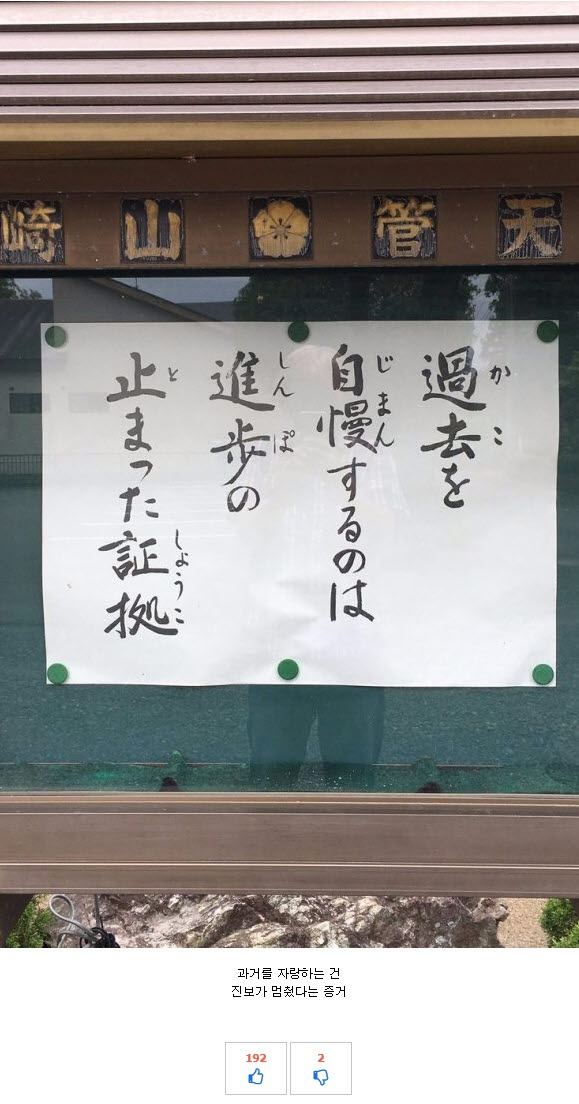 天管山崎
かこ
過去を
じまん
自慢するのは
しんぽ
進歩の
と しょうこ
止まった証拠
과거를 자랑하는 건
진보가 멈췄다는 증거
192 2